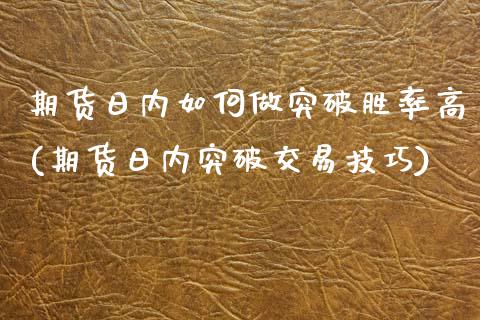 期货日内如何做突破胜率高
(期货日内突破交易技巧)